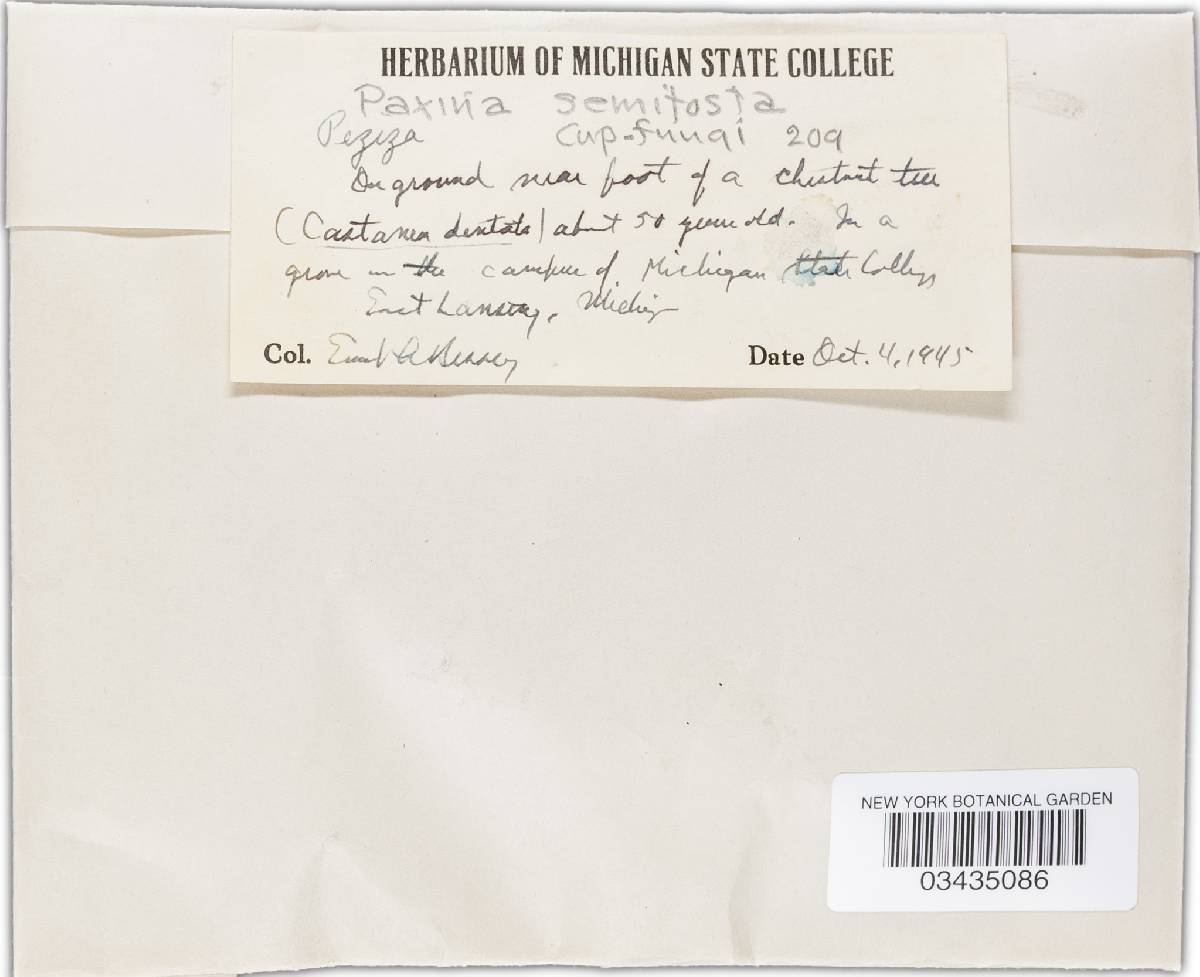 HERBARIUM OF MICHIGAN STATE COLLEGE
Paxina semitosta
Peziza Cup-fungi 209
On ground near foot of a chestnut tree
(Castanea dentata) about 50 years old. In a
grove on the campus of Michigan State College
East Lansing, Michigan
Col. Ernst A Bessey Date Oct. 4, 1945
NEW YORK BOTANICAL GARDEN
03435086